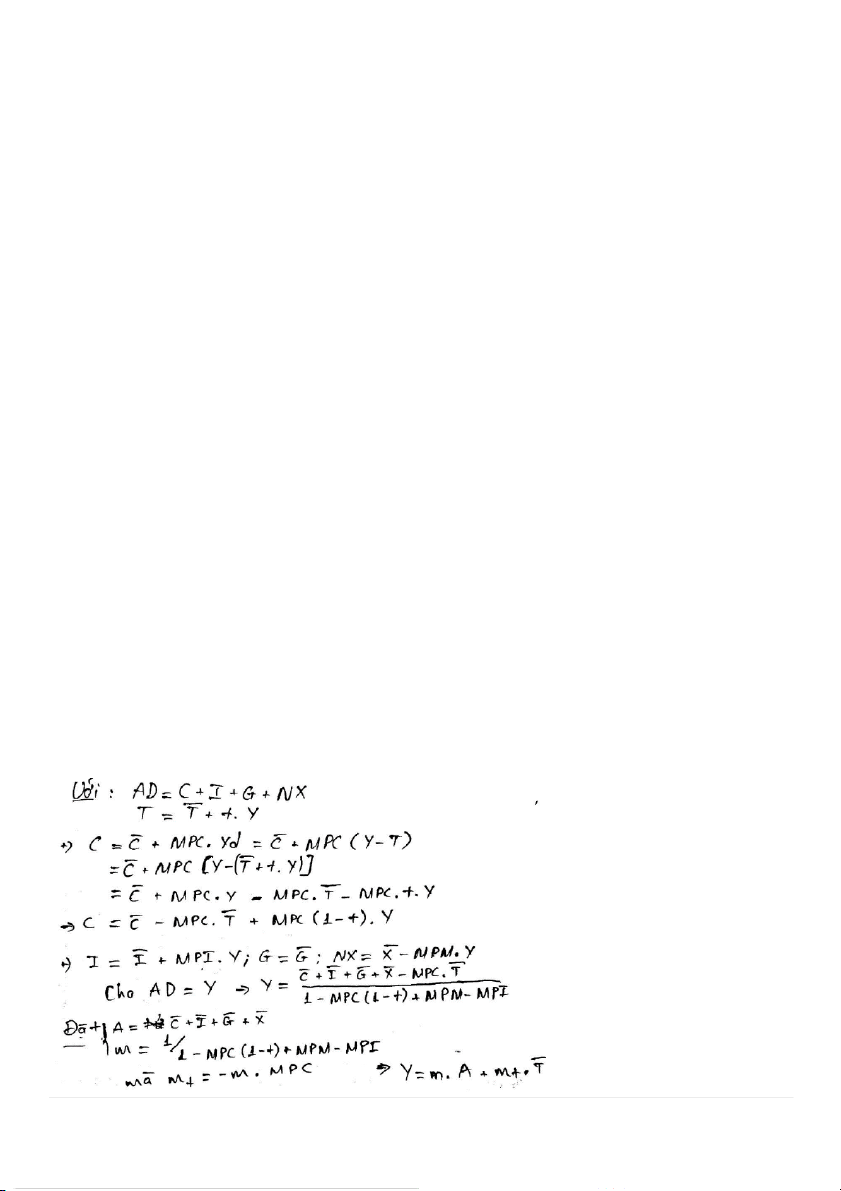 Với : AD = C + I + G + NX
T = T̅ + t. Y
+) C = C̅ + MPC. Yd = C̅ + MPC ( Y - T )
= C̅ + MPC [Y-(T̅ + t. Y)]
= C̅ + MPC. Y - MPC. T̅ - MPC. t. Y
→ C = C̅ - MPC. T̅ + MPC (1-t). Y
+) I = I̅ + MPI. Y; G = G̅ ; NX = X̅ - MPM. Y
Cho AD = Y → Y = C̅ + I̅ + G̅ + X̅ - MPC. T̅ / 1 - MPC (1-t) + MPM - MPI
Đặt A = C̅ + I̅ + G̅ + X̅
m = 1/1 - MPC (1-t) + MPM - MPI
mà mt = -m . MPC ⇒ Y = m. A + mt. T̅